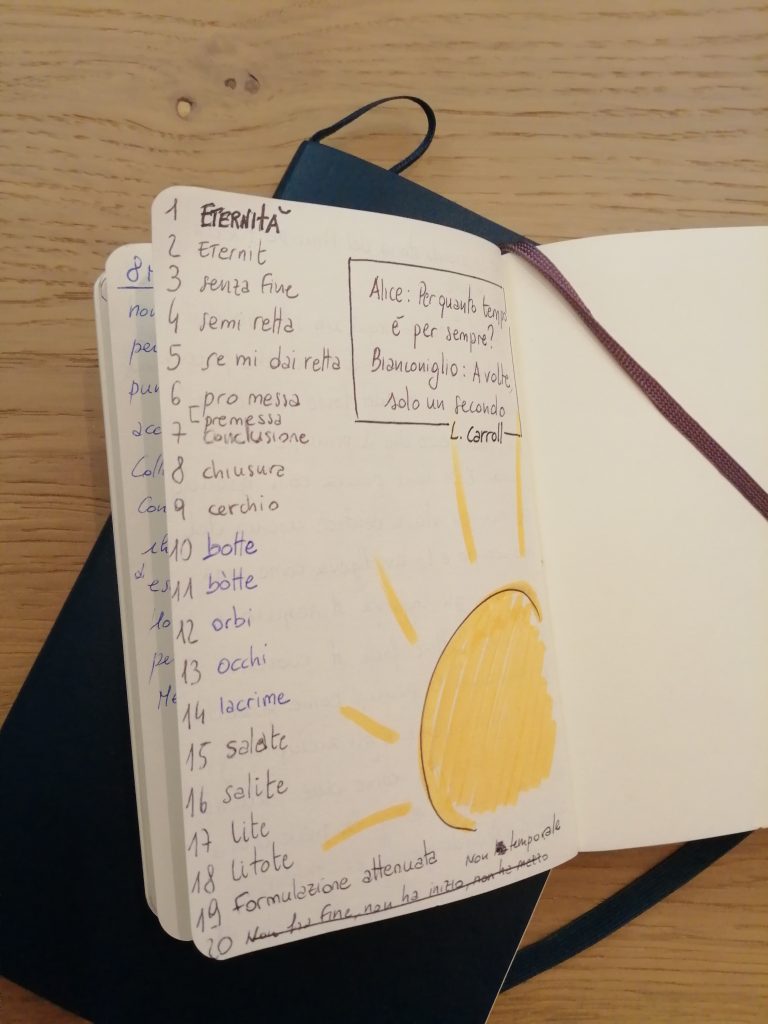 1 ETERNITÀ
2 Eternit
3 senza fine
4 semi retta
5 se mi dai retta
6 pro messa
premessa
7 conclusione
8 chiusura
9 cerchio
10 botte
11 bòtte
12 orbi
13 occhi
14 lacrime
15 salate
16 salite
17 lite
18 litote
19 Formulazione attenuata
Non temporale
20 Non ha fine, non ha inizio, non ha metro
Alice: Per quanto tempo
é per sempre?
Bianconiglio: A volte,
solo un secondo
L. Carroll
8